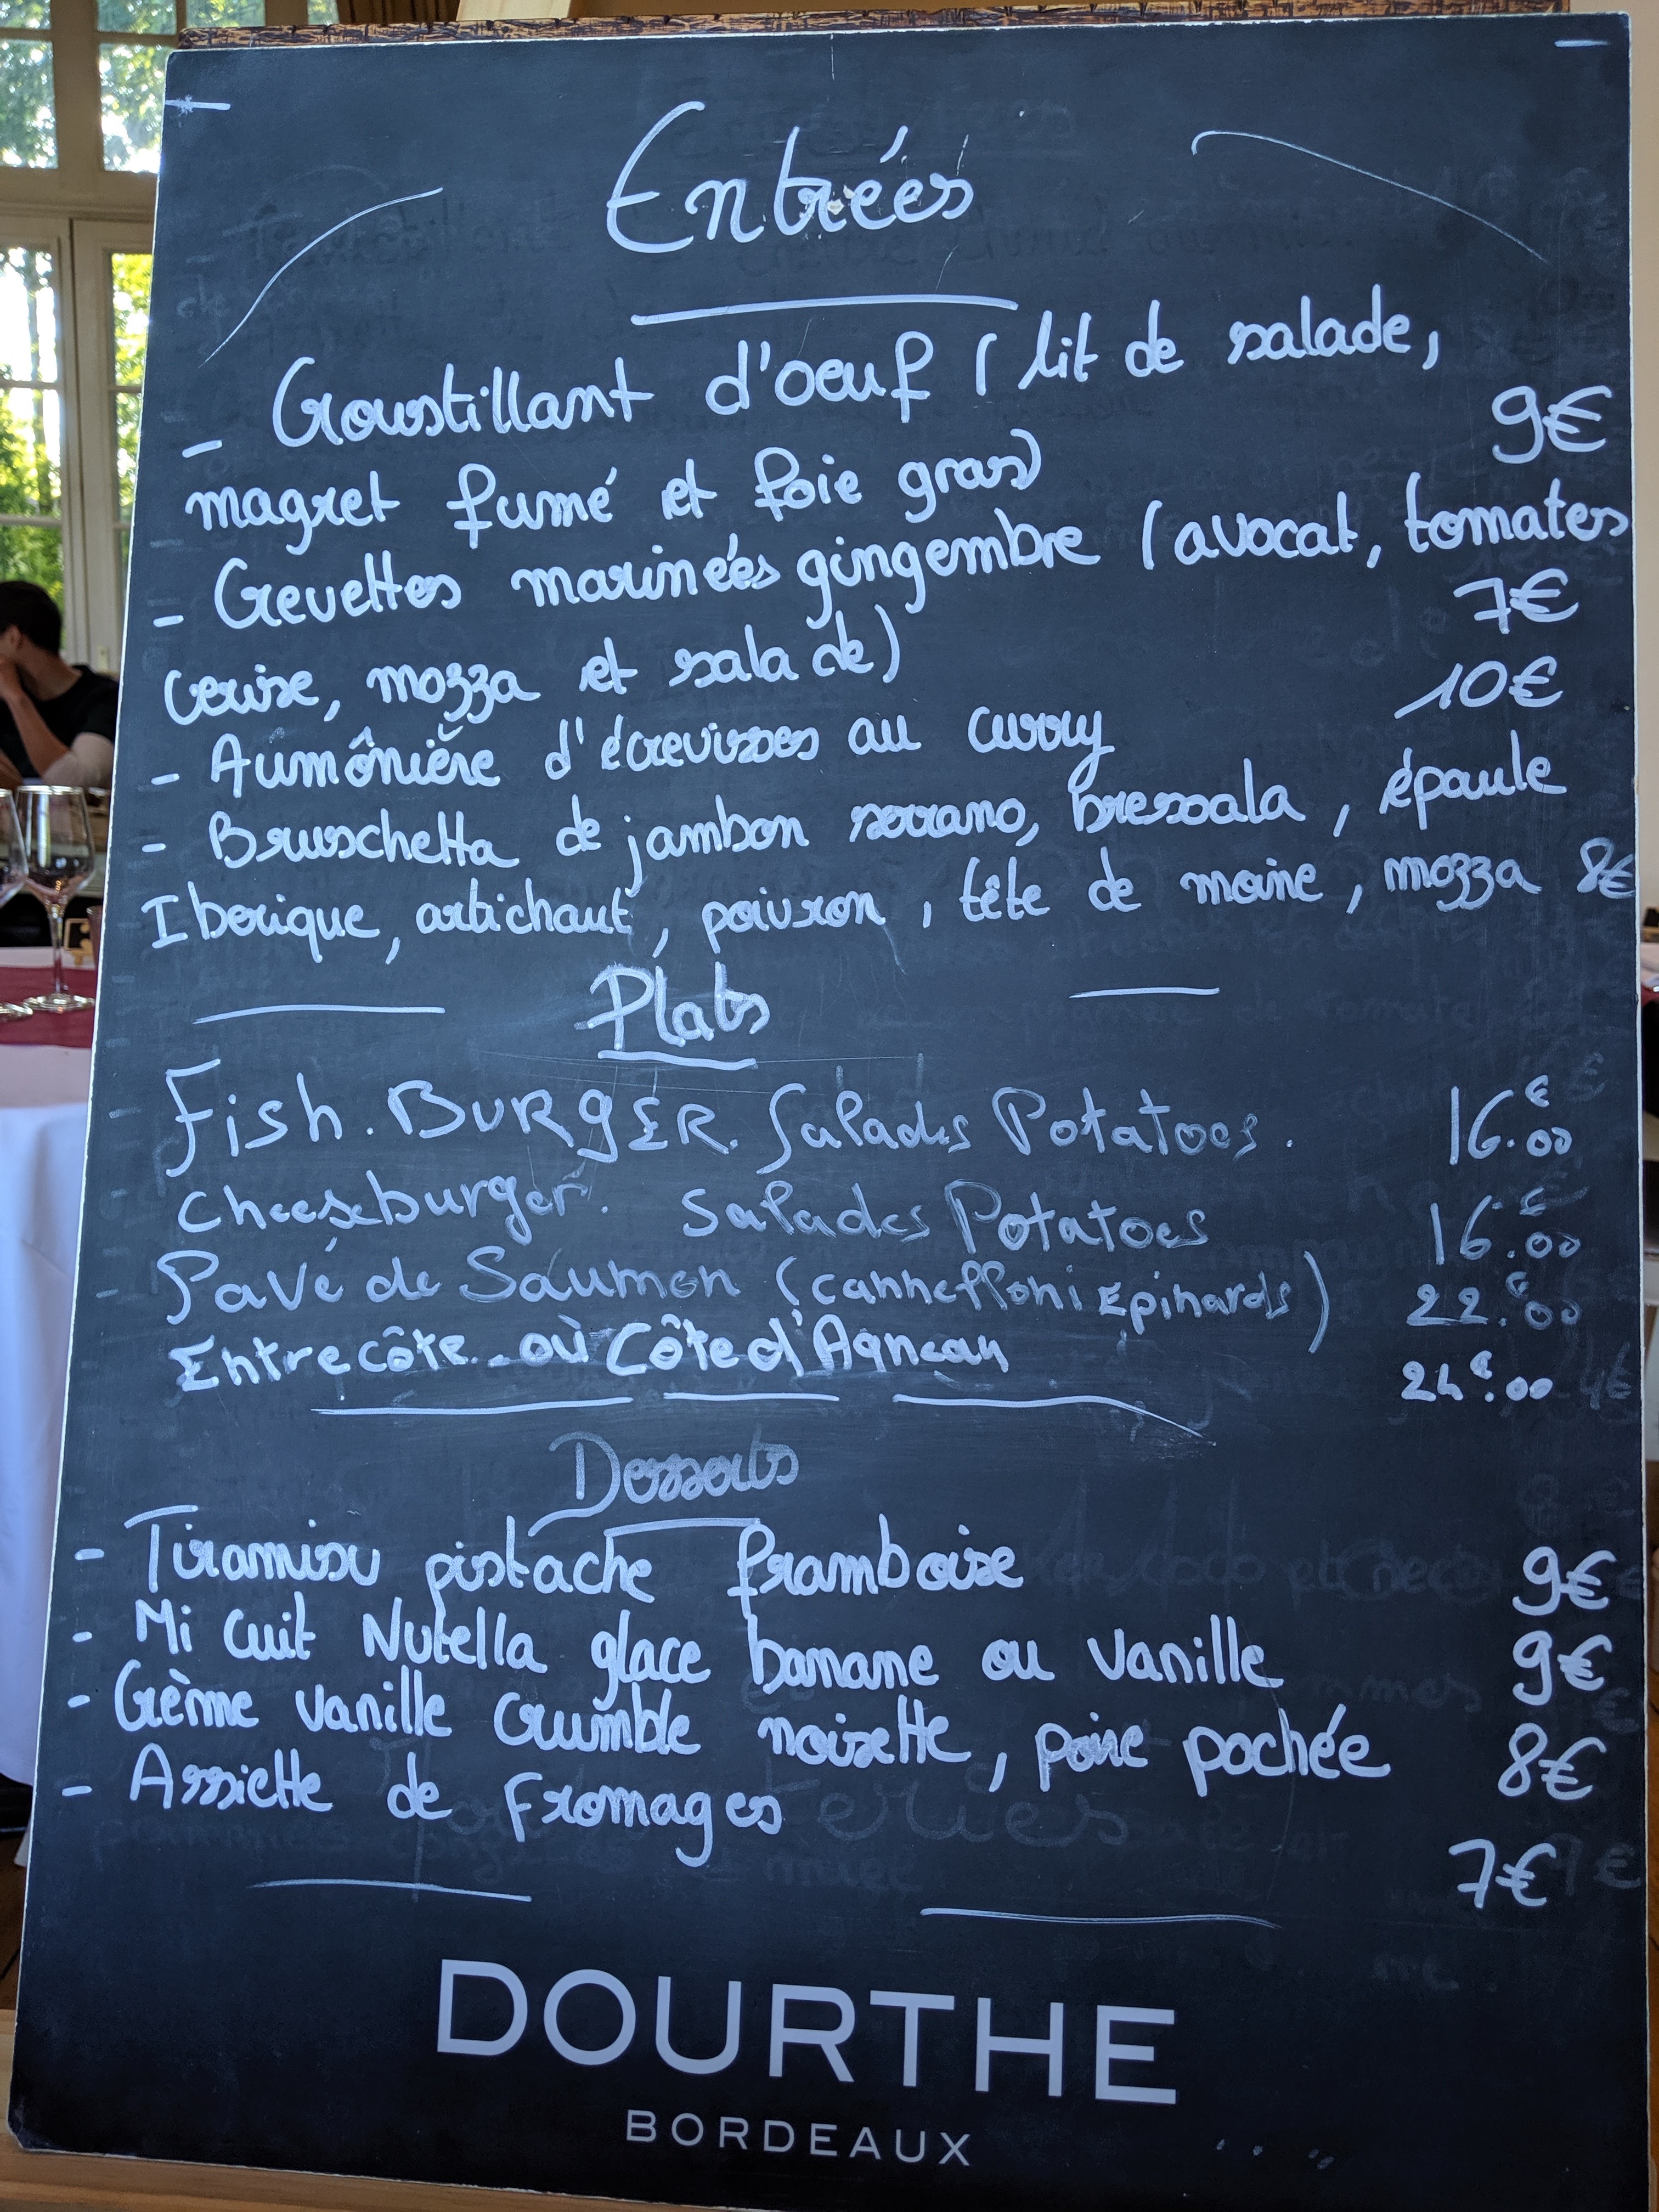 Entrées
- Croustillant d'oeuf ( lit de salade,
9€
magret fumé et foie gras)
- Crevettes marinées gingembre (avocat, tomates
7€
cerise, mozza et salade)
10€
- Aumônière d'écrevisses au curry
- Bruschetta de jambon serrano, bressala, épaule
Iberique, artichaut, poivron, tête de moine, mozza 8€
Plats
Fish. BURgER. Salades Potatoes. 16.€00
Cheeseburger. Salades Potatoes 16.€00
- Pavé de Saumon (cannelloni Epinards) 22.€00
Entrecôte...où Côte d'Agneau 24€.00
Desserts
- Tiramisu pistache framboise 9€
- Mi cuit Nutella glace banane ou vanille 9€
- Crème vanille crumble noisette, poire pochée 8€
- Assiette de Fromages
7€
DOURTHE
BORDEAUX